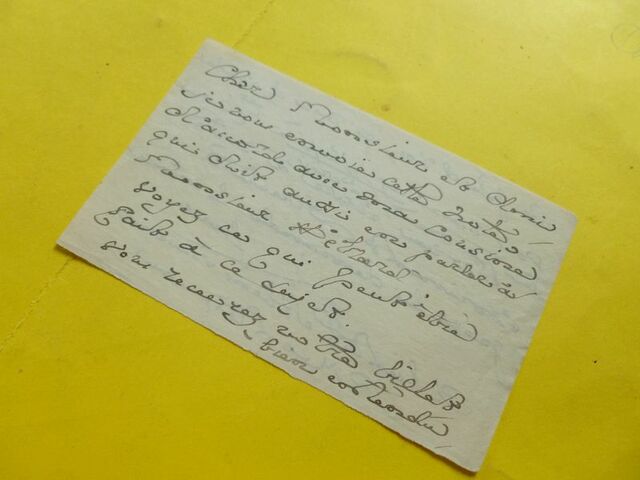 Cher Monsieur et Ami
je vous envoie cette note
d'accord avec ma cousine
qui doit aussi en parler à
Monsieur Hébrard
voyez ce qui peut être
fait à ce sujet.
vous recevrez votre billet
bien entendu